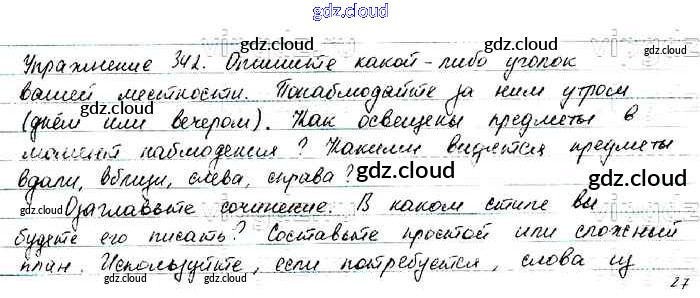 gdz.cloud
Упражнение 342. Опишите какой-либо уголок
gdz.cloud gdz.cloud
вашей местности. Понаблюдайте за ним утром
gdz.cloud
(днём или вечером). Как освещены предметы в
gdz.cloud gdz.cloud
момент наблюдения? Какими видятся предметы
gdz.cloud
вдали, вблизи, слева, справа?
gdz.cloud
gdz.cloud
Озаглавьте сочинение. В каком стиле вы
gdz.cloud gdz.cloud
будете его писать? Составьте простой или сложный
gdz.cloud
план. Используйте, если потребуется, слова из
gdz.cloud gdz.cloud
27